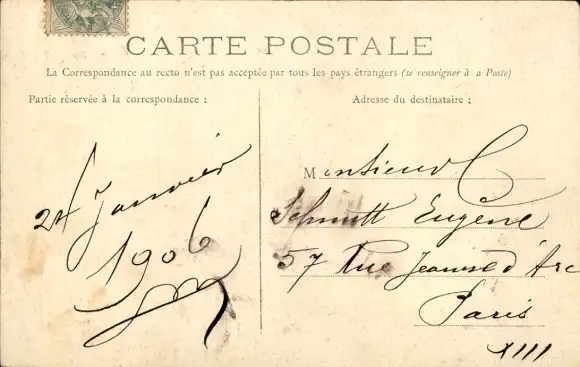 CARTE POSTALE
La Correspondance au recto n'est pas acceptée par tous les pays étrangers (se renseigner à a Poste)
Partie réservée à la correspondance :
Adresse du destinataire :
24 Janvier
1906
Monsieur
Schmitt Eugène
57 Rue Jeanne d'Arc
Paris
XIII